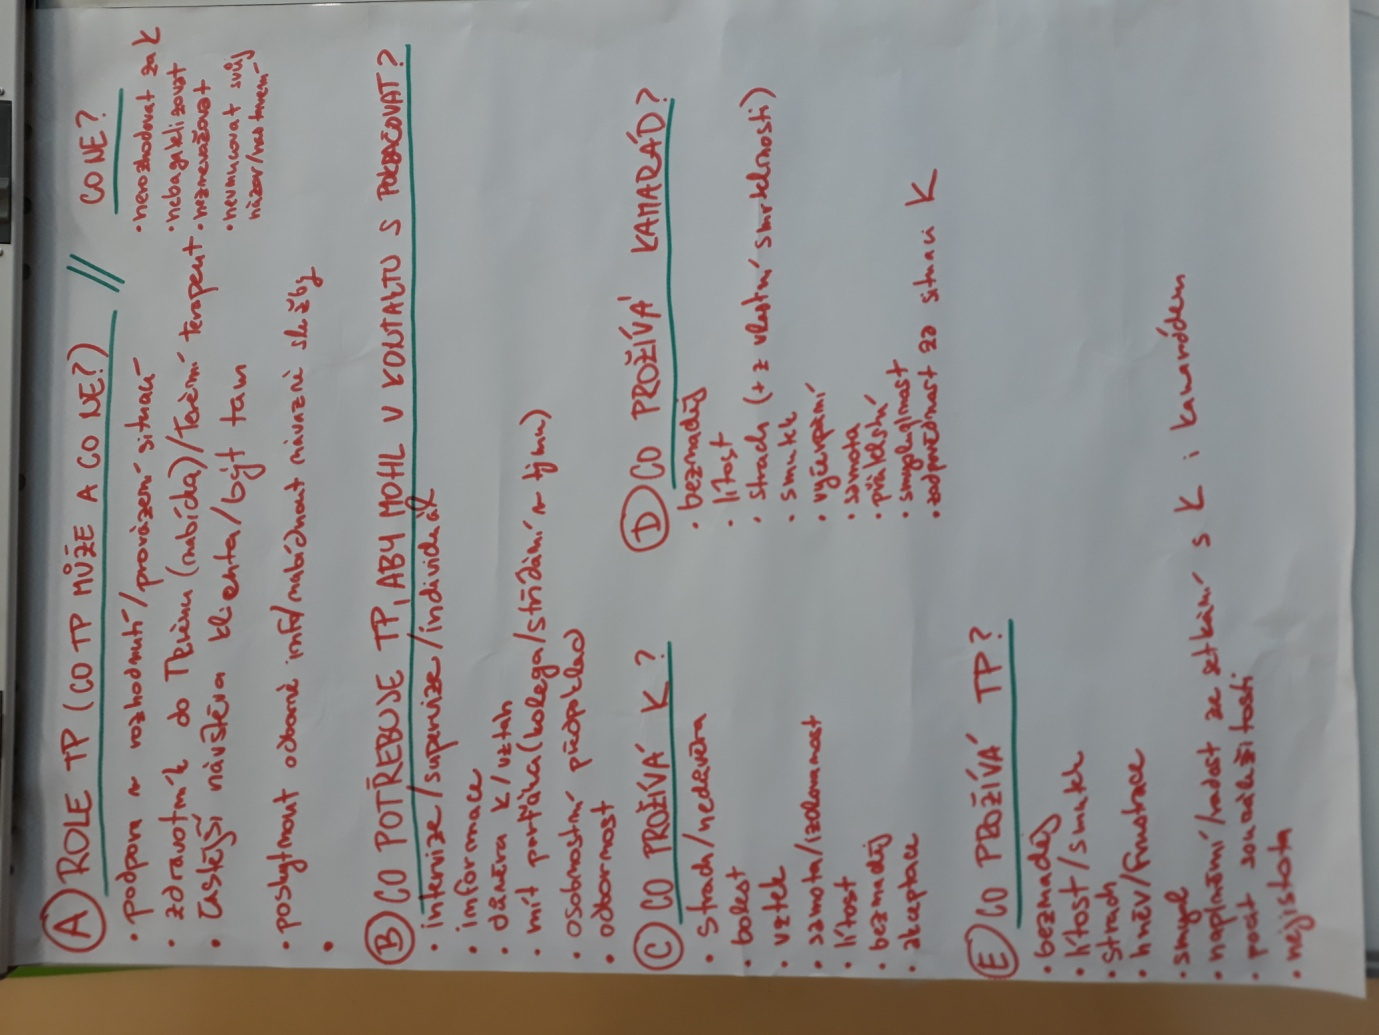 A ROLE TP (CO TP MŮŽE A CO NE?) //
• podpora v rozhodnutí/provázení situací
• zdravotník do Terénu (nabídka)/Terénní terapeut
• častější návštěva klienta/být tam
• poskytnout odborné info/nabídnout návazné služby
•
CO NE?
• nerozhodovat za K
• nebagatelizovat
• neznevažovat
• nevnucovat svůj
názor/
B CO POTŘEBUJE TP, ABY MOHL V KONTAKTU S POKRAČOVAT?
• intervize/supervize/individuál
• informace
• důvěra k/vztah
• mít parťáka (kolega/střídání v týmu)
• osobnostní předpoklad
• odbornost
C CO PROŽÍVÁ K?
• strach/nedůvěra
• bolest
• vztek
• samota/izolovanost
• lítost
• beznaděj
• akceptace
D CO PROŽÍVÁ KAMARÁD?
• beznaděj
• lítost
• strach (+ z vlastní smrtelnosti)
• smutek
• vyčerpání
• samota
• přátelství
• smysluplnost
• zodpovědnost za situaci K
E CO PROŽÍVÁ TP?
• beznaděj
• lítost/smutek
• strach
• hněv/frustrace
• smysl
• naplnění/radost ze setkání s K i kamarádem
• pocit sounáležitosti
• nejistota